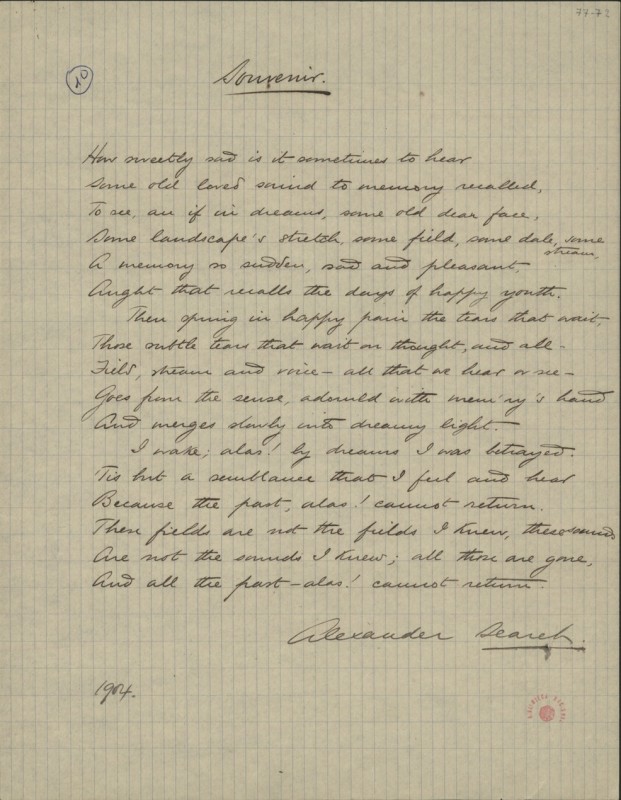 77-72
10
Souvenir.
How sweetly sad is it sometimes to hear
Some old loved sound to memory recalled,
To see, as if in dreams, some old dear face,
Some landscape's stretch, some field, some dale, some
stream,
A memory so sudden, sad and pleasant,
Aught that recalls the days of happy youth.
Then spring in happy pain the tears that wait,
Those subtle tears that wait on thought, and all -
Field, stream and voice - all that we hear or see -
Goes from the sense, adorned with mem'ry's hand
And merges slowly into dreamy light.
I wake; alas! by dreams I was betrayed.
'Tis but a semblance that I feel and hear
Because the past, alas! cannot return.
These fields are not the fields I knew, these sounds
Are not the sounds I knew; all those are gone,
And all the past - alas! cannot return.
Alexander Search.
1904.